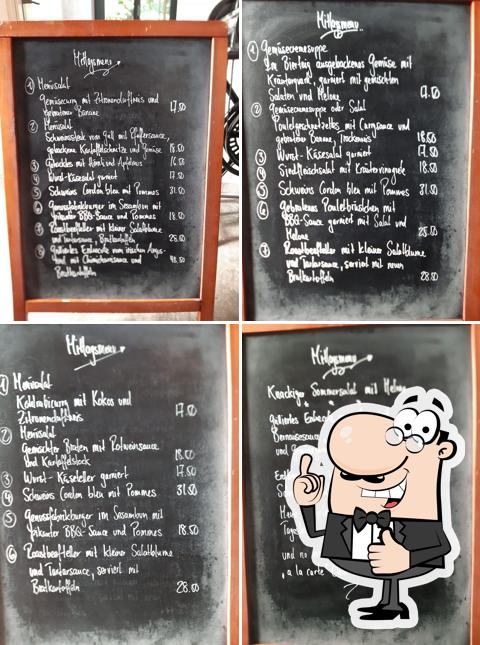 Mittagsmenu
1) Menüsalat
Gemüsecurry mit Zitronenduftreis und
gebratener Banane 17.50
2) Menüsalat
Schweinssteak vom Grill mit Pfeffersauce,
gebackene Kartoffelschnitze und Gemüse 18.50
3) Ghackets mit Hörnli und Apfelmus 16.50
4) Wurst-Käsesalat garniert 17.50
5) Schweins Cordon bleu mit Pommes 31.50
6) Genussfabrikburger im Sesambun mit
pikanter BBQ-Sauce und Pommes 18.50
7) Roastbeefteller mit kleiner Salatblume
und Tartarsauce, Bratkartoffeln 28.50
8) Grilliertes Entrecote vom irischen Angus-
rind mit Chimichurrisauce und 48.50
Bratkartoffeln
Mittagsmenu
1) Gemüsecremesuppe
Im Bierteig ausgebackenes Gemüse mit
Kräuterquark, garniert mit gemischten
Salaten und Melone 17.50
2) Gemüsecremesuppe oder Salat
Pouletgeschnetzeltes mit Currysauce und
gebratener Banane, Trockenreis 18.50
3) Wurst-Käsesalat garniert 17.50
4) Siedfleischsalat mit Kräutervinaigrette 18.50
5) Schweins Cordon bleu mit Pommes 31.50
6) Gebratenes Pouletbrüstchen mit
BBQ-Sauce garniert mit Salat und
Melone 25.00
7) Roastbeefteller mit kleiner Salatblume
und Tartarsauce, serviert mit neuen
Bratkartoffeln 28.50
Mittagsmenu
1) Menüsalat
Kohlrabicurry mit Kokos und
Zitronenduftreis 17.50
2) Menüsalat
Gemischter Braten mit Rotweinsauce
und Kartoffelstock 18.50
3) Wurst-Käseteller garniert 17.50
4) Schweins Cordon bleu mit Pommes 31.50
5) Genussfabrikburger im Sesambun mit
pikanter BBQ-Sauce und Pommes 18.50
6) Roastbeefteller mit kleiner Salatblume
und Tartarsauce, serviert mit
Bratkartoffeln 28.50
Mittagsmenu
Knackiger Sommersalat mit Melone
grilliertes
und
und
a la carte